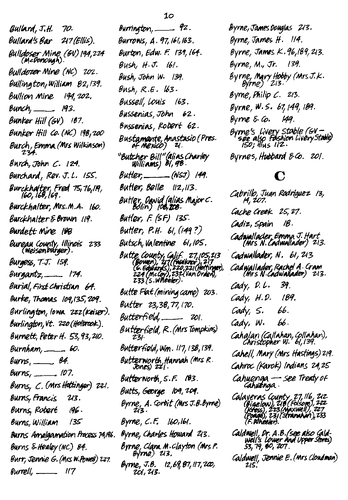 20
Bullard, J.H. 70.
Bullard's Bar 217 (Ellis).
Bulldoser Mine (GV) 194, 224
(McDonough).
Bulldozer Mine (NC) 202.
Bullington, William 82, 139.
Bullion Mine 194, 202.
Bunch, ____ 193.
Bunker Hill (GV) 187.
Bunker Hill Co. (NC) 198, 200
Burch, Emma (Mrs Wilkinson)
234.
Burch, John C. 124.
Burchand, Rev. J.L. 155.
Burckhalter, Fred 75, 76, 119,
160, 168, 169.
Burckhalter, Mrs. M.A. 160.
Burckhalter & Brown 119.
Burdett Mine 188
Bureau County, Illinois 233
(Meissenburger).
Burgess, T.J. 159.
Burgantz, ____ 174.
Burial, First Christian 64.
Burke, Thomas 109, 135, 209.
Burlington, Iowa 222 (Keiser).
Burlington, Vt. 220 (Holbrook).
Burnett, Peter H. 53, 93, 210.
Burnham, ____ 60.
Burns, ____ 84.
Burns, ____ 107.
Burns, C. (Mrs Hottinger) 221.
Burns, Francis 213.
Burns, Robert 196.
Burns, William 135
Burns Amalgamation Process 74, 196.
Burns & Healey (NC) 84.
Burr, Jennie G. (Mrs W. Powell) 227.
Burrell, ____ 117
Burrington, ____ 92.
Burrows, A. 97, 161, 163.
Burton, Edw. F. 139, 164.
Bush, H.J. 161.
Bush, John W. 139.
Bush, R.E. 163.
Bussell, Louis 163.
Bussenius, John 62.
Bussenius, Robert 62.
Bustamante, Anastasio (Pres.
of Mexico) 21.
"Butcher Bill" (alias Charley
Williams) 81, 98.
Butler, ____ (NSJ) 149.
Butler, Belle 112, 113.
Butler, David (alias Major C.
Bolin)
Butler, F. (SF) 135.
Butler, P.H. 61, (149?)
Butsch, Valentine 61, 105.
Butte County, Calif. 27, 105, 213
Butte Flat (mining camp) 203.
Butter 23, 38, 77, 170.
Butterfield, ____ 201.
Butterfield, R. (Mrs Tompkins)
231.
Butterfield, Wm. 117, 138, 139.
Butterworth, Hannah (Mrs R.
Jones) 221.
Butterworth, S.F. 183.
Butts, George 109, 209.
Byrne, A. Corbit (Mrs J.B. Byrne)
213.
Byrne, C.F. 160, 161.
Byrne, Charles Howard 213.
Byrne, Clara M. Clayton (Mrs P.
Byrne) 213.
Byrne, J.B. 12, 69, 87, 117, 202,
212, 213.
Byrne, James Douglas 213.
Byrne, James H. 114.
Byrne, James K. 96, 189, 213.
Byrne, M., Jr. 139.
Byrne, Mary Hobby (Mrs J.K.
Byrne) 213.
Byrne, Philip C. 213.
Byrne, W.S. 67, 149, 189.
Byrne & Co. 149.
Byrne's Livery Stable (GV —
see also Fashion Livery Stable)
150; illus 112.
Byrnes, Hubbard & Co. 201.
C
Cabrillo, Juan Rodriguez 13,
14, 207.
Cache Creek 25, 27.
Cadiz, Spain 18.
Cadwallader, Emma J. Hart
(Mrs N. Cadwallader) 213.
Cadwallader, N. 61, 213
Cadwallader, Rachel A. Cram
(Mrs N. Cadwallader) 213.
Cady, D.L. 39.
Cady, H.D. 189.
Cady, S. 66.
Cady, W. 66.
Cahalan (Callahan, Collahan),
Christopher W. 61, 139.
Cahell, Mary (Mrs Hastings) 219.
Cahroc (Karok) Indians 24, 25
Cahuenga — see Treaty of
Cahuenga.
Calaveras County 27, 116, 212
Caldwell, Dr. A.B. (see also Cald-
well's Lower And Upper Stores)
53, 79, 80, 207.
Caldwell, Jennie E. (Mrs Cloudman)
215.